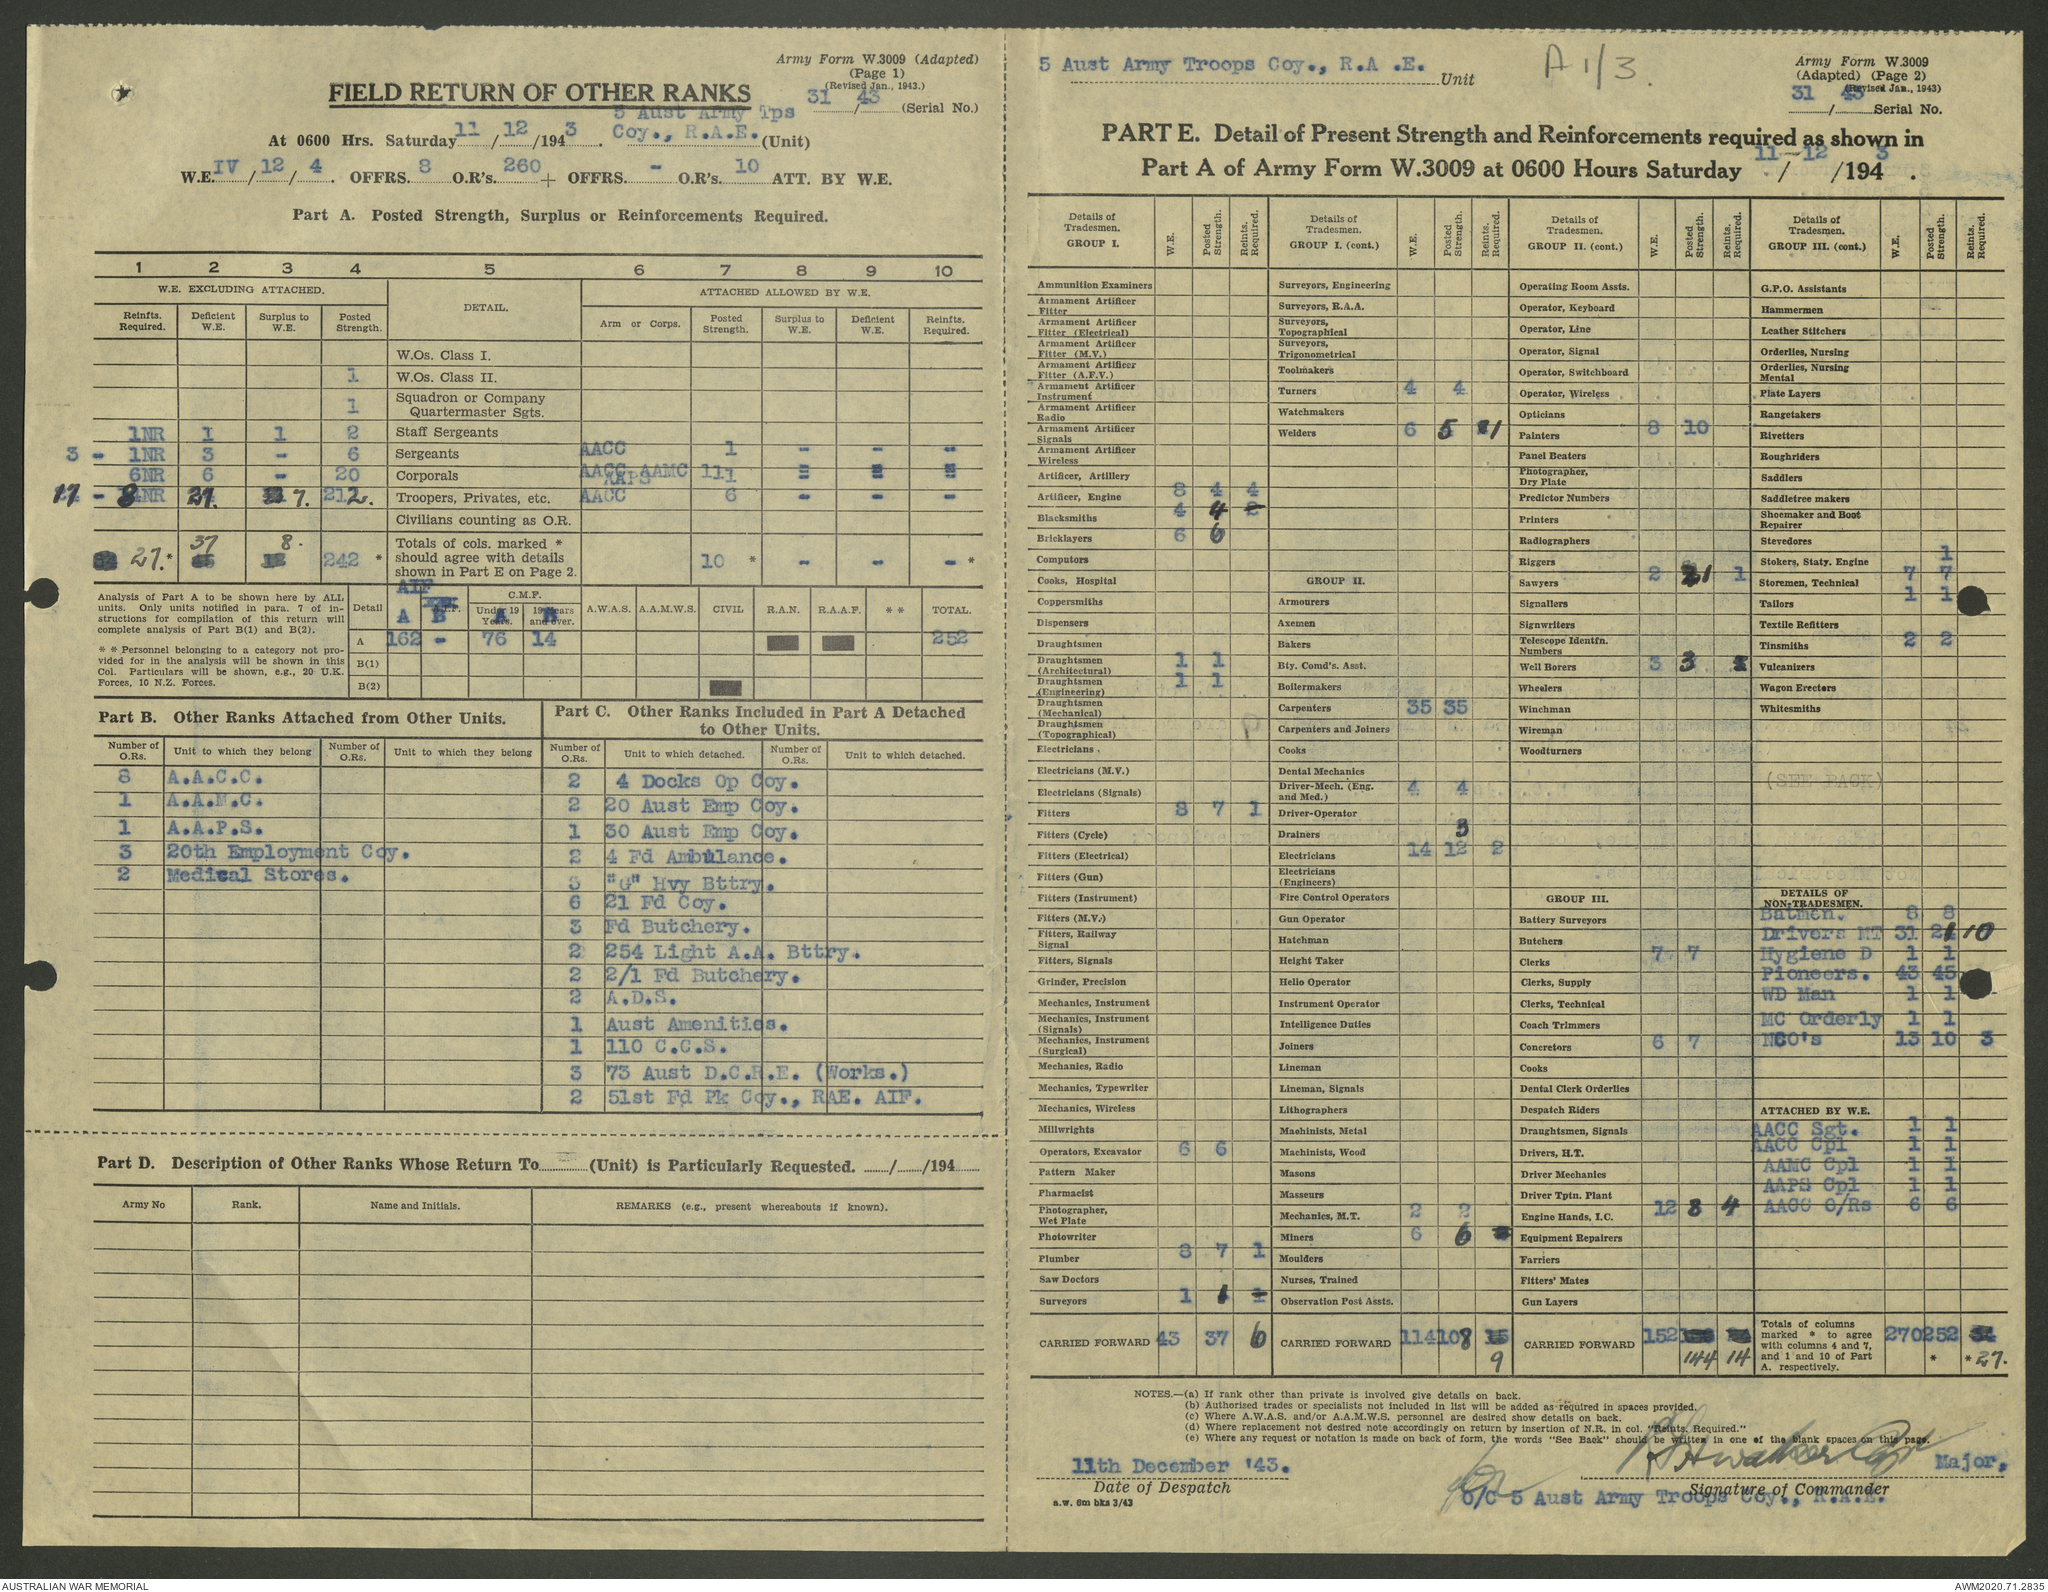 Army Form W.3009 (Adapted)
(Page 1)
(Revised Jan., 1943.)
FIELD RETURN OF OTHER RANKS
31/43 (Serial No.)
5 Aust Army Tps
At 0600 Hrs. Saturday 11/12/1943. Coy., R.A.E. (Unit)
W.E. IV/12/4. OFFRS. 8 O.R's. 260 + OFFRS. - O.R's. 10 ATT. BY W.E.
Part A. Posted Strength, Surplus or Reinforcements Required.
1 2 3 4 5 6 7 8 9 10
W.E. EXCLUDING ATTACHED. DETAIL. ATTACHED ALLOWED BY W.E.
Reinfts. Required. Deficient W.E. Surplus to W.E. Posted Strength. Arm or Corps. Posted Strength. Surplus to W.E. Deficient W.E. Reinfts. Required.
W.Os. Class I.
1 W.Os. Class II.
1 Squadron or Company Quartermaster Sgts.
1NR 1 1 2 Staff Sergeants
3 - 1NR 3 - 6 Sergeants AACC 1 - - -
6NR 6 - 20 Corporals AACC AAMC AAPS 111 = = =
17 - 8NR 27. 7. 212. Troopers, Privates, etc. AACC 6 - - -
Civilians counting as O.R.
27.* 37 8. 242 * Totals of cols. marked * should agree with details shown in Part E on Page 2. 10 * - - - *
Analysis of Part A to be shown here by ALL units. Only units notified in para. 7 of instructions for compilation of this return will complete analysis of Part B(1) and B(2).
* * Personnel belonging to a category not provided for in the analysis will be shown in this Col. Particulars will be shown, e.g., 20 U.K. Forces, 10 N.Z. Forces.
Detail AIF A B C.M.F. Under 19 Years. 19 Years and over. A.W.A.S. A.A.M.W.S. CIVIL R.A.N. R.A.A.F. * * TOTAL.
A 162 - 76 14 252
B(1)
B(2)
Part B. Other Ranks Attached from Other Units.
Number of O.Rs. Unit to which they belong Number of O.Rs. Unit to which they belong
8 A.A.C.C.
1 A.A.M.C.
1 A.A.P.S.
3 20th Employment Coy.
2 Medical Stores.
Part C. Other Ranks Included in Part A Detached to Other Units.
Number of O.Rs. Unit to which detached. Number of O.Rs. Unit to which detached.
2 4 Docks Op Coy.
2 20 Aust Emp Coy.
1 30 Aust Emp Coy.
2 4 Fd Ambulance.
3 "G" Hvy Bttry.
6 21 Fd Coy.
3 Fd Butchery.
2 254 Light A.A. Bttry.
2 2/1 Fd Butchery.
2 A.D.S.
1 Aust Amenities.
1 110 C.C.S.
3 73 Aust D.C.R.E. (Works.)
2 51st Fd Pk Coy., RAE. AIF.
Part D. Description of Other Ranks Whose Return To (Unit) is Particularly Requested. / /194
Army No Rank. Name and Initials. REMARKS (e.g., present whereabouts if known).
5 Aust Army Troops Coy., R.A .E. Unit
A 1/3.
Army Form W.3009
(Adapted) (Page 2)
(Revised Jan., 1943)
31/43 Serial No.
PART E. Detail of Present Strength and Reinforcements required as shown in
Part A of Army Form W.3009 at 0600 Hours Saturday 11-12/1943.
Details of Tradesmen. GROUP I. W.E. Posted Strength. Reints. Required.
Ammunition Examiners
Armament Artificer Fitter
Armament Artificer Fitter (Electrical)
Armament Artificer Fitter (M.V.)
Armament Artificer Fitter (A.F.V.)
Armament Artificer Instrument
Armament Artificer Radio
Armament Artificer Signals
Armament Artificer Wireless
Artificer, Artillery
Artificer, Engine 8 4 4
Blacksmiths 4 4 2
Bricklayers 6 6
Computors
Cooks, Hospital
Coppersmiths
Dispensers
Draughtsmen
Draughtsmen (Architectural) 1 1
Draughtsmen (Engineering) 1 1
Draughtsmen (Mechanical)
Draughtsmen (Topographical)
Electricians.
Electricians (M.V.)
Electricians (Signals)
Fitters 8 7 1
Fitters (Cycle)
Fitters (Electrical)
Fitters (Gun)
Fitters (Instrument)
Fitters (M.V.)
Fitters, Railway Signal
Fitters, Signals
Grinder, Precision
Mechanics, Instrument
Mechanics, Instrument (Signals)
Mechanics, Instrument (Surgical)
Mechanics, Radio
Mechanics, Typewriter
Mechanics, Wireless
Millwrights
Operators, Excavator 6 6
Pattern Maker
Pharmacist
Photographer, Wet Plate
Photowriter
Plumber 8 7 1
Saw Doctors
Surveyors 1 1 1
CARRIED FORWARD 43 37 6
Details of Tradesmen. GROUP I. (cont.) W.E. Posted Strength. Reints. Required.
Surveyors, Engineering
Surveyors, R.A.A.
Surveyors, Topographical
Surveyors, Trigonometrical
Toolmakers
Turners 4 4
Watchmakers
Welders 6 5 1
GROUP II.
Armourers
Axemen
Bakers
Bty. Comd's. Asst.
Boilermakers
Carpenters 35 35
Carpenters and Joiners
Cooks
Dental Mechanics
Driver-Mech. (Eng. and Med.) 4 4
Driver-Operator
Drainers 3
Electricians 14 12 2
Electricians (Engineers)
Fire Control Operators
Gun Operator
Hatchman
Height Taker
Helio Operator
Instrument Operator
Intelligence Duties
Joiners
Lineman
Lineman, Signals
Lithographers
Machinists, Metal
Machinists, Wood
Masons
Masseurs
Mechanics, M.T. 2 2
Miners 6 6
Moulders
Nurses, Trained
Observation Post Assts.
CARRIED FORWARD 114 108 15 9
Details of Tradesmen. GROUP II. (cont.) W.E. Posted Strength. Reints. Required.
Operating Room Assts.
Operator, Keyboard
Operator, Line
Operator, Signal
Operator, Switchboard
Operator, Wireless
Opticians
Painters 8 10
Panel Beaters
Photographer, Dry Plate
Predictor Numbers
Printers
Radiographers
Riggers
Sawyers 2 1 1
Signallers
Signwriters
Telescope Identfn. Numbers
Well Borers 3 3
Wheelers
Winchman
Wireman
Woodturners
GROUP III.
Battery Surveyors
Butchers
Clerks 7 7
Clerks, Supply
Clerks, Technical
Coach Trimmers
Concretors 6 7
Cooks
Dental Clerk Orderlies
Despatch Riders
Draughtsmen, Signals
Drivers, H.T.
Driver Mechanics
Driver Tptn. Plant
Engine Hands, I.C. 12 8 4
Equipment Repairers
Farriers
Fitters' Mates
Gun Layers
CARRIED FORWARD 152 144 14
Details of Tradesmen. GROUP III. (cont.) W.E. Posted Strength. Reints. Required.
G.P.O. Assistants
Hammermen
Leather Stitchers
Orderlies, Nursing
Orderlies, Nursing Mental
Plate Layers
Rangetakers
Rivetters
Roughriders
Saddlers
Saddletree makers
Shoemaker and Boot Repairer
Stevedores
Stokers, Staty. Engine 1
Storemen, Technical 7 7
Tailors 1 1
Textile Refitters
Tinsmiths 2 2
Vulcanizers
Wagon Erectors
Whitesmiths
(SEE BACK)
DETAILS OF NON-TRADESMEN.
Batmen. 8 8
Drivers MT 31 21 10
Hygiene D 1 1
Pioneers. 43 45
WD Man 1 1
MC Orderly 1 1
NCO's 13 10 3
ATTACHED BY W.E.
AACC Sgt. 1 1
AACC Cpl 1 1
AAMC Cpl 1 1
AAPS Cpl 1 1
AACC O/Rs 6 6
Totals of columns marked * to agree with columns 4 and 7, and 1 and 10 of Part A. respectively. 270 252 * 34 *27.
NOTES.—(a) If rank other than private is involved give details on back.
(b) Authorised trades or specialists not included in list will be added as required in spaces provided.
(c) Where A.W.A.S. and/or A.A.M.W.S. personnel are desired show details on back.
(d) Where replacement not desired note accordingly on return by insertion of N.R. in col. "Reints. Required."
(e) Where any request or notation is made on back of form, the words "See Back" should be written in one of the blank spaces on this page.
11th December '43. Major.
Date of Despatch Signature of Commander
a.w. 6m bks 3/43 O/C 5 Aust Army Troops Coy., R.A.E.
AUSTRALIAN WAR MEMORIAL AWM2020.71.2835